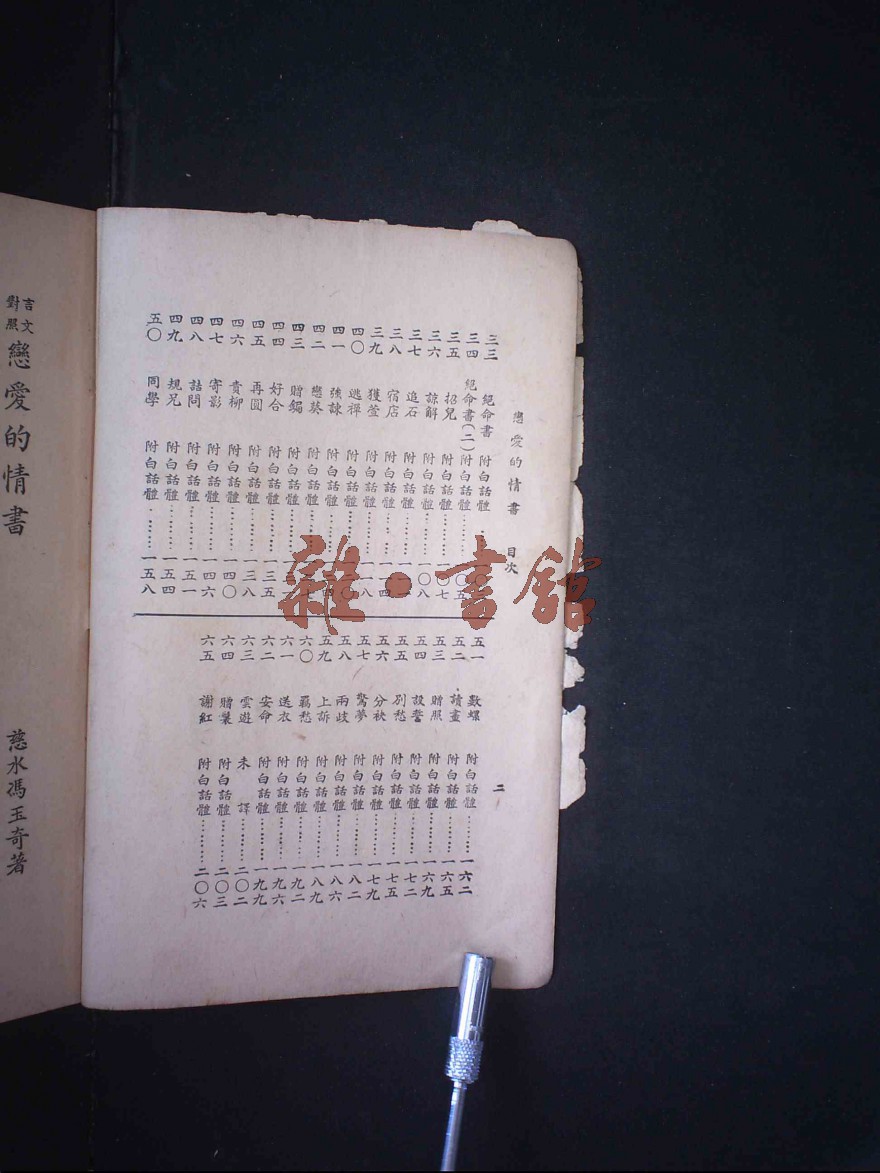 戀愛的情書　目次
二
三三　絕命書　附白話體
三四　絕命書(二)　附白話體
三五　招兒　附白話體
三六　諒解　附白話體
三七　追石　附白話體
三八　宿店　附白話體
三九　獲萱　附白話體
四〇　逃禪　附白話體
四一　強諫　附白話體
四二　戀葵　附白話體
四三　贈鐲　附白話體
四四　好合　附白話體………一三五
四五　再圓　附白話體………一三八
四六　責柳　附白話體………一四〇
四七　寄影　附白話體………一四六
四八　詰問　附白話體………一五一
四九　規兄　附白話體………一五四
五〇　同學　附白話體………一五八
五一　數螺　附白話體………一六二
五二　讀畫　附白話體………一六五
五三　贈照　附白話體………一六九
五四　設誓　附白話體………一七二
五五　別愁　附白話體………一七五
五六　分袂　附白話體………一七九
五七　驚夢　附白話體………一八二
五八　兩歧　附白話體………一八六
五九　上訴　附白話體………一八九
六〇　羈愁　附白話體………一九二
六一　送衣　附白話體………一九六
六二　安命　附白話體………一九九
六三　雲遊　未譯………二〇二
六四　贈　附白話體………二〇三
六五　謝紅　附白話體………二〇六
言文對照　戀愛的情書
慈水馮玉奇著
雜·書館